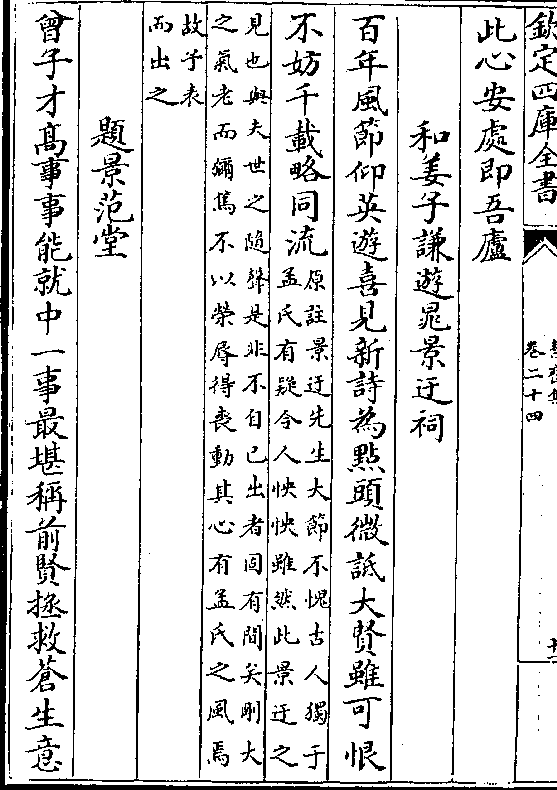 欽定四庫全書
卷二十四
此心安處即吾廬
和姜子謙遊晁景迂祠
百年風節仰英遊喜見新詩為點頭微詆大賢雖可恨
不妨千載略同流
原註景迂先生大節不愧古人獨于
孟氏有疑令人怏怏雖然此景迂之
見也與夫世之隨聲是非不自己出者固有間矣剛大
之氣老而彌篤不以榮辱得喪動其心有孟氏之風焉
故予表
而出之
題景范堂
曾子才高事事能就中一事最堪稱前賢拯救蒼生意